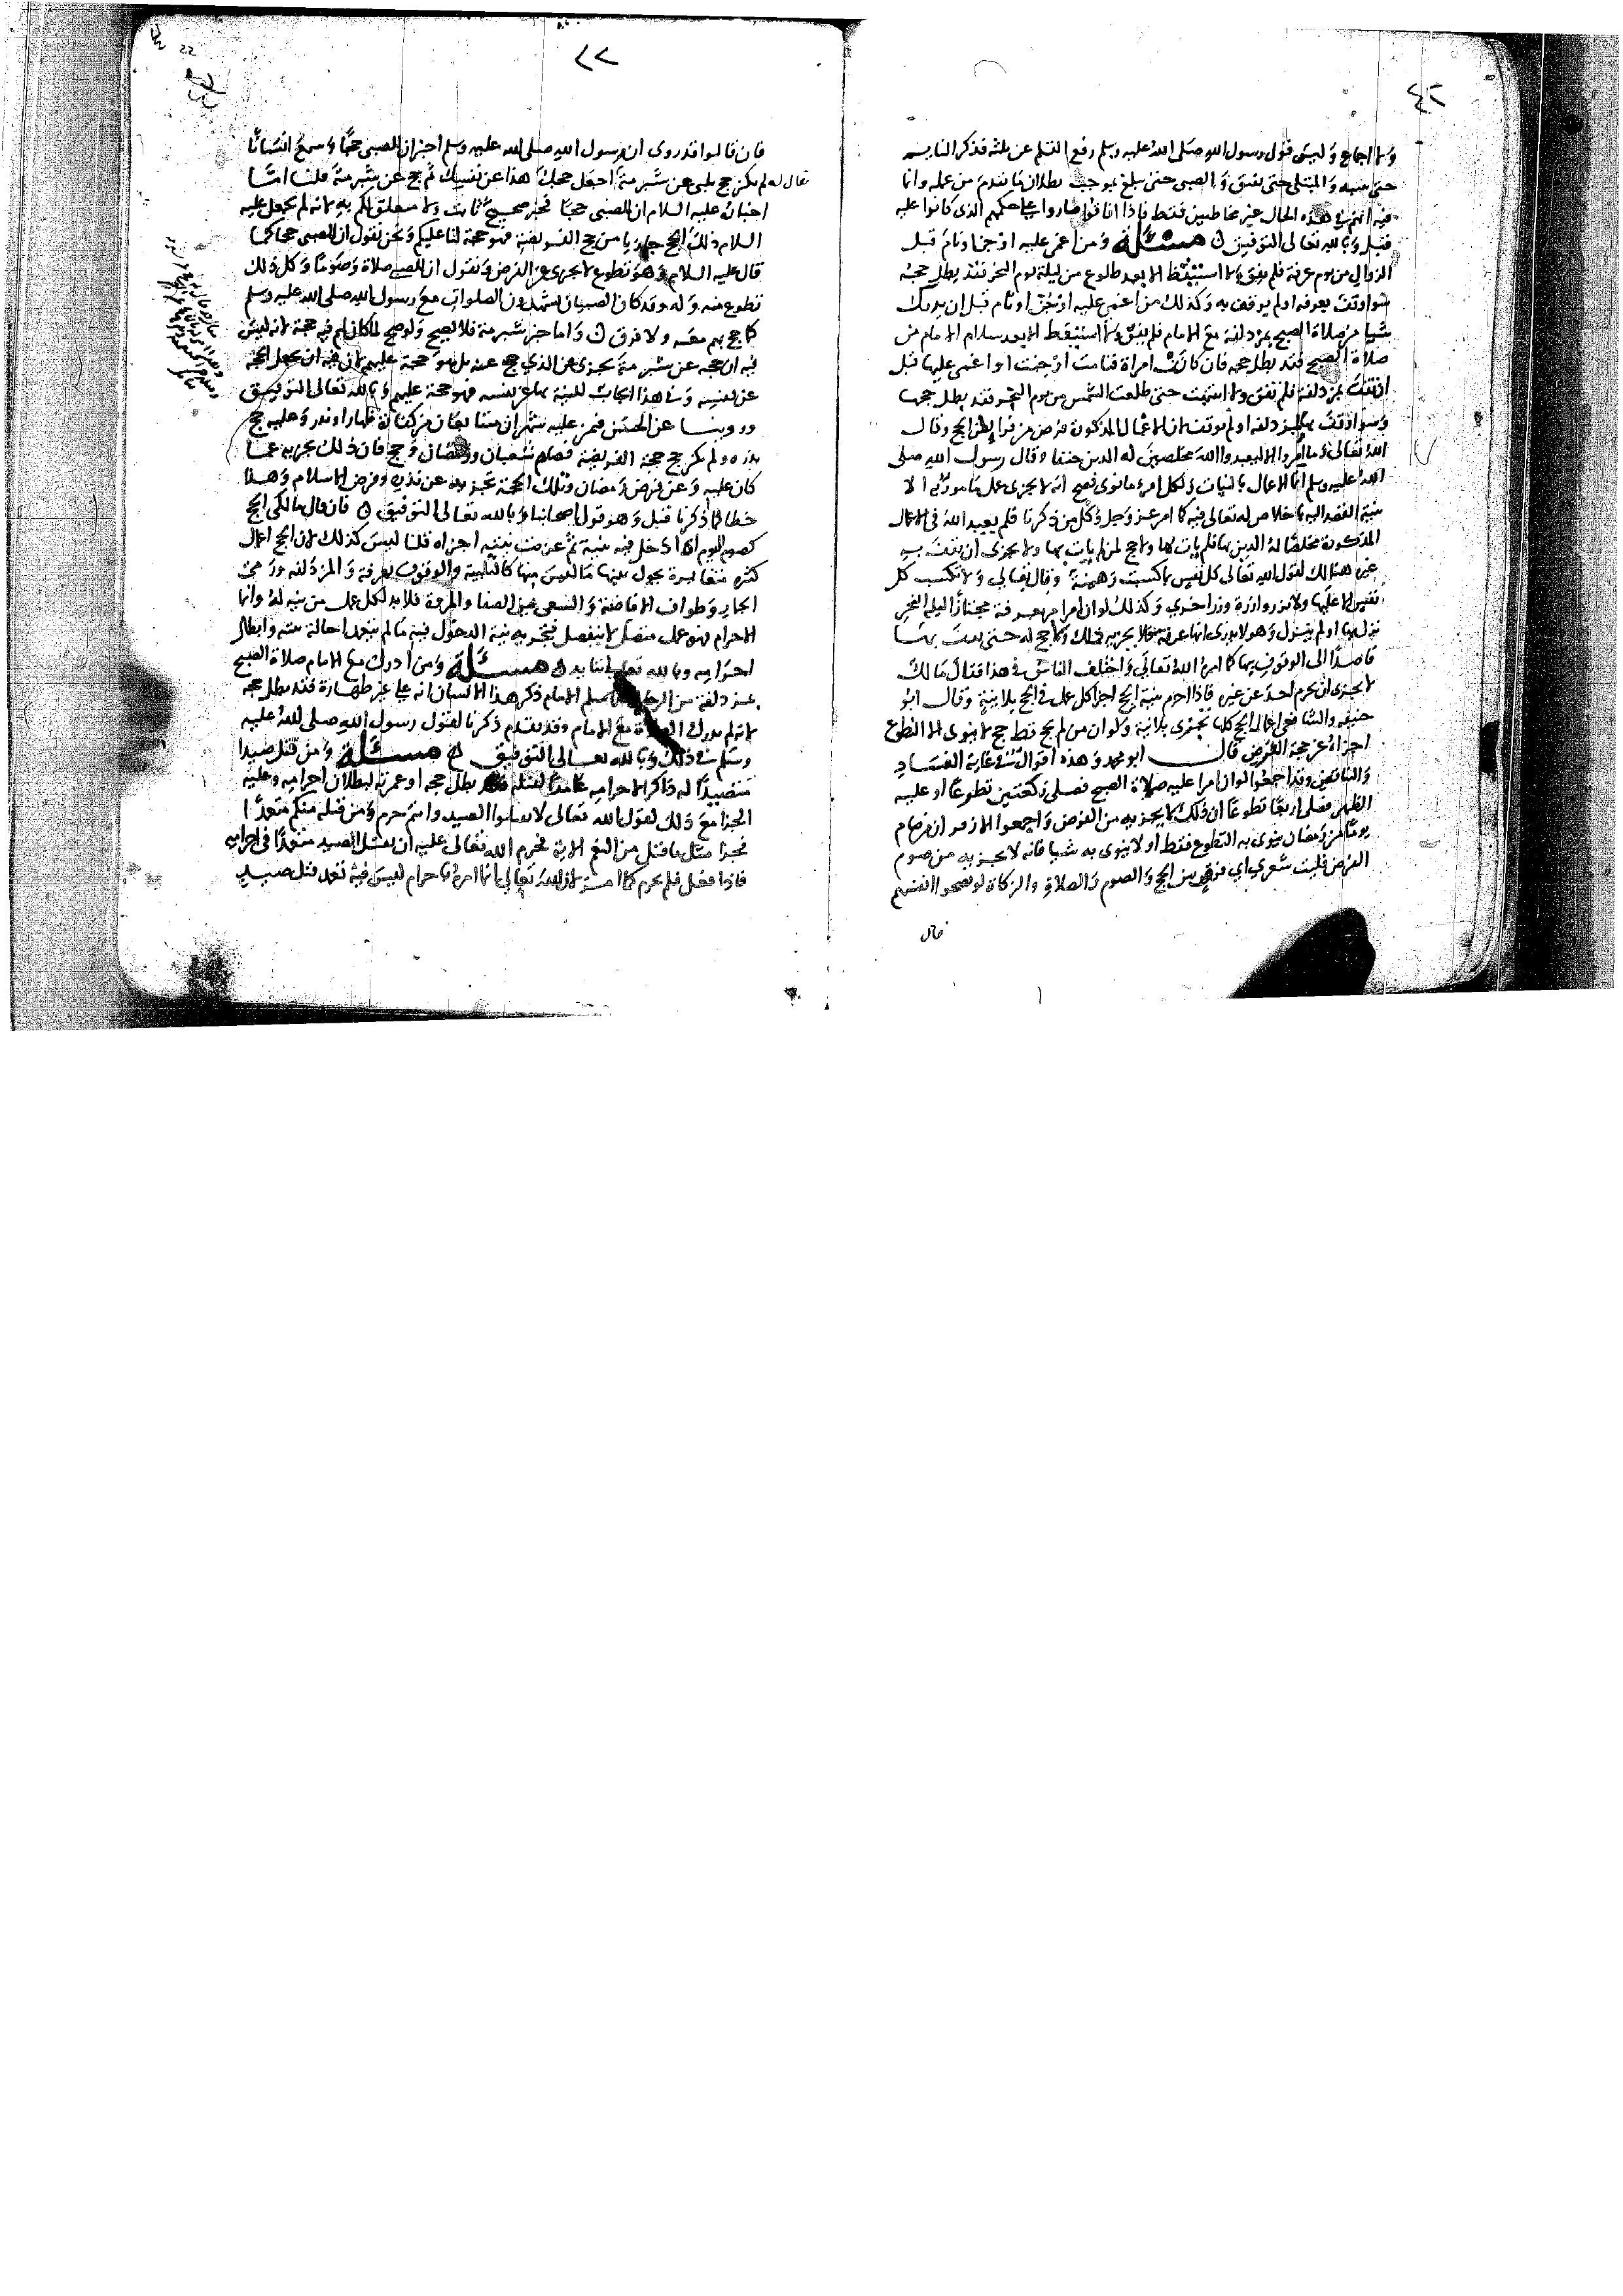 ولا اجماع وليس قول رسول الله صلى الله عليه وسلم رفع القلم عن ثلثة فذكر النايم
حتى ينتبه والمبتلى حتى يفيق والصبي حتى يبلغ بموجب بطلان ما تقدم من عمله وانما
فيه انهم في هذه الحال غير مخاطبين فقط فاذا افاقوا صاروا على حكمهم الذى كانوا عليه
قبل وبالله تعالى التوفيق مسئلة ومن اغمى عليه او جن او نام قبل
الزوال من يوم عرفة فلم يفق ولا استيقظ الا بعد طلوع من ليلة يوم النحر فقد بطل حجه
سوا وقف به بعرفه او لم يوقف به وكذلك من اغمى عليه او جن او نام قبل ان يدرك
شيا من صلاة الصبح بمزدلفة مع الامام فلم يفق ولا استيقظ الا بعد سلام الامام من
صلاة الصبح فقد بطل حجه فان كانت امراة فنامت او جنت او اغمى عليها قبل
ان تقف بمزدلفة فلم تفق ولا انتبهت حتى طلعت الشمس من يوم النحر فقد بطل حجها
وسوا وقفت بها بمزدلفه او لم توقف لان الاعمال المذكورة فرض من فرايض الحج وقال
الله تعالى وما امروا الا ليعبدوا الله مخلصين له الدين حنفا وقال رسول الله صلى
الله عليه وسلم انما الاعمال بالنيات ولكل امرء ما نوى فصح انه لا يجزى عمل مامور به الا
بنية القصد اليه باخلاص لله تعالى فيه كما امر عز وجل وكل من ذكرنا فلم يعبد الله فى الاعمال
المذكورة مخلصًا له الدين بها فلم يات بها ولا حج لمن لم يات بها ولا يجزى ان يقف به
غيره هنالك لقول الله تعالى كل نفس بما كسبت رهينة وقال تعالى ولا تكسب كل
نفس الا عليها ولا تزر وازرة وزر اخرى وكذلك لو ان امرا مر بعرفة مجتازًا ليلة النحر
نزل بها او لم ينزل وهو لا يدرى انها عرفة فلا يجزيه ذلك ولا حج له حتى يقف بها
قاصدًا الى الوقوف بها كما امره الله تعالى واختلف الناس فى هذا فقال مالك
لا يجزى ان يحرم احد عن غيره فاذا احرم بنية الحج اجزا كل عمل فى الحج بلا نية وقال ابو
حنيفه والشافعى اعمال الحج كلها تجزى بلا نية ولو ان من لم يحج قط حج لا ينوى الا التطوع
اجزاه عن حجة الفرض قال ابو محمد وهذه اقوال فى غاية الفساد
والتناقض وقد اجمعوا لو ان امرا عليه صلاة الصبح فصلى ركعتين تطوعًا او عليه
الظهر فصلى اربعًا تطوعًا ان ذلك لا يجزيه من الفرض واجمعوا الا زفر ان من صام
يومًا من رمضان ينوى به التطوع فقط او لا ينوى به شيا فانه لا يجزيه من صوم
الفرض فليت شعري اي فرق بين الحج والصوم والصلاة والزكاة لو نصحوا انفسهم
فان قالوا قد روى ان رسول الله صلى الله عليه وسلم اخبر ان للصبى حجًا وسمع انسانًا
يلبى عن شبرمة احعل حجك هذا عن نفسك ثم حج عن شبرمة قلنا امّا
اخباره عليه السلام ان للصبى حجًا فخبر صحيح ثابت ولا متعلق لكم به لانه لم يجعل عليه
السلام ذلك الحج جازيا من حج الفريضة فهو حجة لنا عليكم ونحن نقول ان للصبى حجا كما
قال عليه السلام وهو تطوع لا يجزى عن الفرض ونقول ان للصبى صلاة وصومًا وكل ذلك
تطوع منه وله وقد كان الصبيان يشهدون الصلوات مع رسول الله صلى الله عليه وسلم
كما حج بهم معه ولا فرق واما خبر شبرمة فلا يصح ولو صح لما كان لهم فيه حجة لانه ليس
فيه ان حجه عن شبرمة يجزى عن الذي حج عنه بل هو حجة عليهم لان فيه ان يجعل الحجة
عن نفسه وفى هذا ايجاب للنية بها عن نفسه فهو حجة عليهم وبالله تعالى التوفيق
وروينا عن الحسن فيمن عليه شهران متتابعان من كفارة ظهار او نذر وعليه حج
نذره ولم يكن حج حجة الفريضة فصام شعبان ورمضان وحج فان ذلك يجزيه عما
كان عليه وعن فرض رمضان وتلك الحجة تجزيه عن نذره وفرض الاسلام وهذا
خطا لما ذكرنا قبل وهو قول اصحابنا وبالله تعالى التوفيق فان قال مالكى الحج
كصوم اليوم اذا دخل فيه بنية ثم عزبت نيته اجزاه قلنا ليس كذلك لان الحج اعمال
كثيره متغايرة يحول بينها ما ليس منها كالتلبية والوقوف بعرفة والمزدلفه ورمى
الجمار وطواف الافاضة والسعى بين الصفا والمروة فلا بد لكل عمل من نيه له وانما
الاحرام فهو عمل متصل لا ينفصل فتجزيه نية الدخول فيه ما لم يتعمد احالة نيته وابطال
احرامه وبالله تعالى نتايد مسئلة ومن ادرك مع الامام صلاة الصبح
بمزدلفة من الرجال سلم الامام ذكر هذا الانسان انه على غير طهارة فقد بطل حجه
لانه لم يدرك الصلاة مع الامام وقد تقدم ذكرنا لقول رسول الله صلى الله عليه
وسلم فى ذلك وبالله تعالى التوفيق مسئلة ومن قتل صيدا
متصيدًا له ذاكرا لاحرامه عامدًا لقتله فقد بطل حجه او عمرته لبطلان احرامه وعليه
الجزا مع ذلك لقول الله تعالى لا تقتلوا الصيد وانتم حرم ومن قتله منكم متعمدًا
فجزا مثل ما قتل من النعم الاية فحرم الله تعالى عليه ان يقتل الصيد متعمدًا فى احرامه
فاذا فعل فلم يحرم كما امر لان الله تعالى انما امره باحرام ليس فيه تعمد قتل صيد